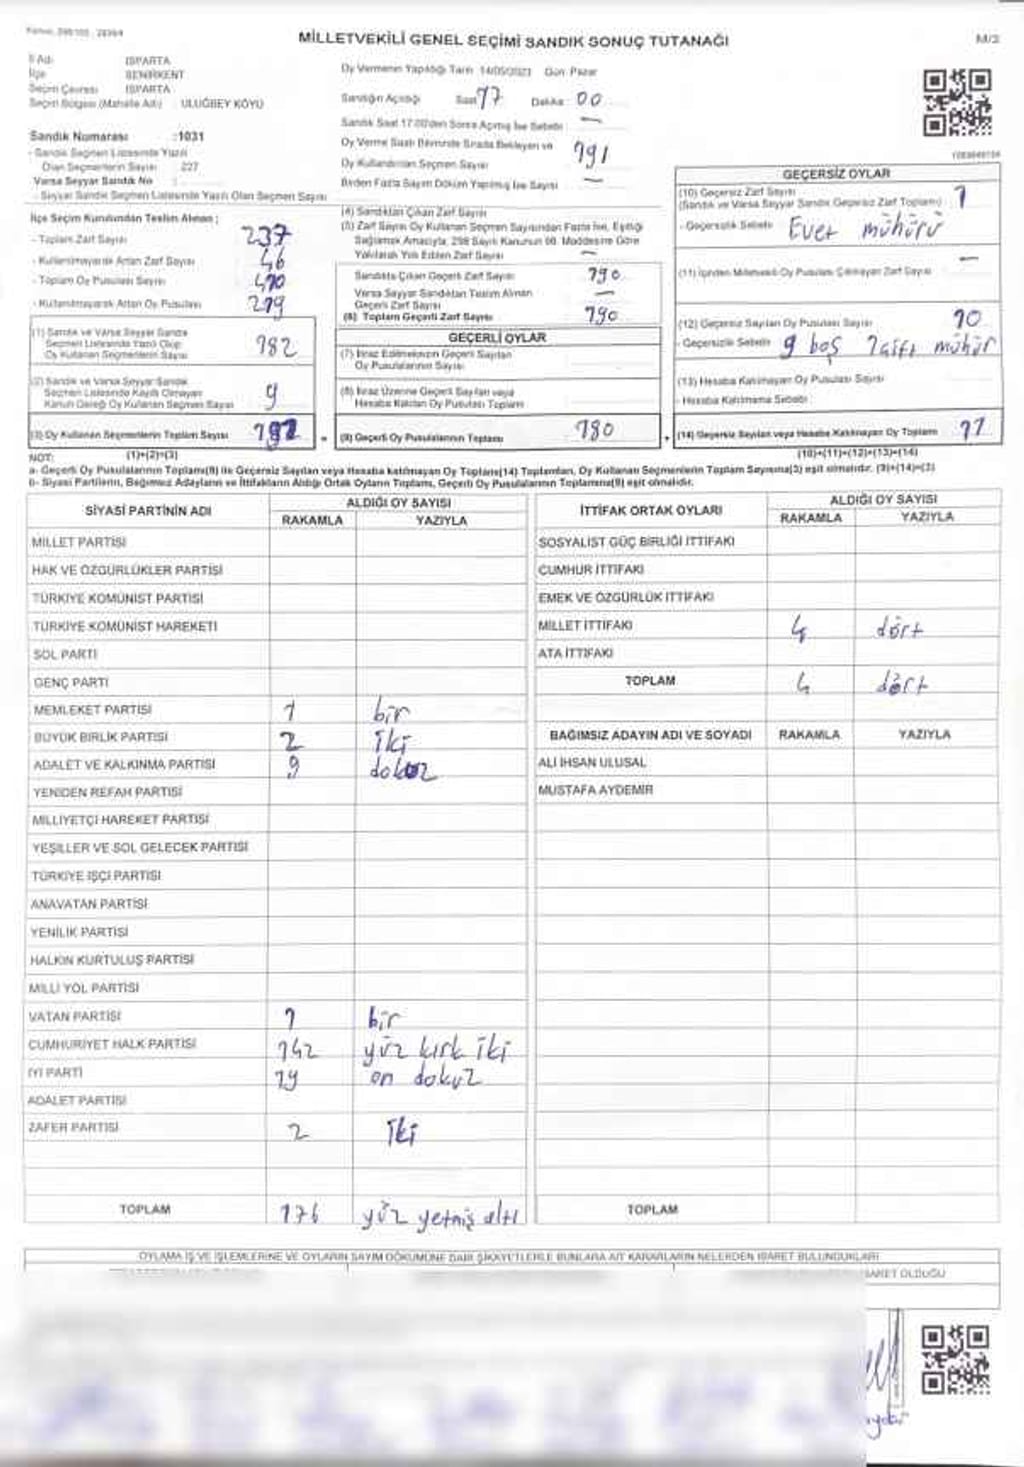 MİLLETVEKİLİ GENEL SEÇİMİ SANDIK SONUÇ TUTANAĞI
M/2
İl Adı ISPARTA
İlçe SENİRKENT
Seçim Çevresi ISPARTA
Seçim Bölgesi (Mahalle Adı) : ULUĞBEY KÖYÜ
Sandık Numarası :1031
- Sandık Seçmen Listesinde Yazılı
Olan Seçmenlerin Sayısı 227
Varsa Seyyar Sandık No
- Seyyar Sandık Seçmen Listesinde Yazılı Olan Seçmen Sayısı
Oy Vermenin Yapıldığı Tarih 14/05/2023 Gün Pazar
Sandığın Açıldığı Saat 17 Dakika 00
Sandık Saat 17:00'den Sonra Açılmış İse Sebebi —
Oy Verme Saati Bitiminde Sırada Bekleyen ve
Oy Kullandırılan Seçmen Sayısı 191
Birden Fazla Sayım Döküm Yapılmış İse Sayısı —
İlçe Seçim Kurulundan Teslim Alınan ;
- Toplam Zarf Sayısı 237
- Kullanılmayarak Artan Zarf Sayısı 46
- Toplam Oy Pusulası Sayısı
- Kullanılmayarak Artan Oy Pusulası
(1) Sandık ve Varsa Seyyar Sandık
Seçmen Listesinde Yazılı Olup
Oy Kullanan Seçmenlerin Sayısı 182
(2) Sandık ve Varsa Seyyar Sandık
Seçmen Listesinde Kayıtlı Olmayan
Kanun Gereği Oy Kullanan Seçmen Sayısı 9
(3) Oy Kullanan Seçmenlerin Toplam Sayısı
(1)+(2)=(3)
(4) Sandıktan Çıkan Zarf Sayısı
(5) Zarf Sayısı Oy Kullanan Seçmen Sayısından Fazla İse, Eşitliği
Sağlamak Amacıyla, 298 Sayılı Kanunun 98. Maddesine Göre
Yakılarak Yok Edilen Zarf Sayısı —
Sandıkta Çıkan Geçerli Zarf Sayısı 190
Varsa Seyyar Sandıktan Teslim Alınan
Geçerli Zarf Sayısı —
(6) Toplam Geçerli Zarf Sayısı 190
GEÇERLİ OYLAR
(7) İtiraz Edilmeksizin Geçerli Sayılan
Oy Pusulalarının Sayısı
(8) İtiraz Üzerine Geçerli Sayılan veya
Hesaba Katılan Oy Pusulası Toplamı
(9) Geçerli Oy Pusulalarının Toplamı 180
GEÇERSİZ OYLAR
(10) Geçersiz Zarf Sayısı
(Sandık ve Varsa Seyyar Sandık Geçersiz Zarf Toplamı) 1
- Geçersizlik Sebebi Evet mühürü
(11) İçinden Milletvekili Oy Pusulası Çıkmayan Zarf Sayısı —
(12) Geçersiz Sayılan Oy Pusulası Sayısı 10
- Geçersizlik Sebebi 9 boş 1 çift mühür
(13) Hesaba Katılmayan Oy Pusulası Sayısı
- Hesaba Katılmama Sebebi
(14) Geçersiz Sayılan veya Hesaba Katılmayan Oy Toplamı 11
(10)+(11)+(12)+(13)=(14)
NOT:
a- Geçerli Oy Pusulalarının Toplamı(9) ile Geçersiz Sayılan veya Hesaba katılmayan Oy Toplamı(14) Toplamları, Oy Kullanan Seçmenlerin Toplam Sayısına(3) eşit olmalıdır. (9)+(14)=(3)
b- Siyasi Partilerin, Bağımsız Adayların ve İttifakların Aldığı Ortak Oyların Toplamı, Geçerli Oy Pusulalarının Toplamına(9) eşit olmalıdır.
SİYASİ PARTİNİN ADI ALDIĞI OY SAYISI
RAKAMLA YAZIYLA
MİLLET PARTİSİ
HAK VE ÖZGÜRLÜKLER PARTİSİ
TÜRKİYE KOMÜNİST PARTİSİ
TÜRKİYE KOMÜNİST HAREKETİ
SOL PARTİ
GENÇ PARTİ
MEMLEKET PARTİSİ 1 bir
BÜYÜK BİRLİK PARTİSİ 2 iki
ADALET VE KALKINMA PARTİSİ 9 dokuz
YENİDEN REFAH PARTİSİ
MİLLİYETÇİ HAREKET PARTİSİ
YEŞİLLER VE SOL GELECEK PARTİSİ
TÜRKİYE İŞÇİ PARTİSİ
ANAVATAN PARTİSİ
YENİLİK PARTİSİ
HALKIN KURTULUŞ PARTİSİ
MİLLİ YOL PARTİSİ
VATAN PARTİSİ 1 bir
CUMHURİYET HALK PARTİSİ 142 yüz kırk iki
İYİ PARTİ 19 on dokuz
ADALET PARTİSİ
ZAFER PARTİSİ 2 iki
TOPLAM 176 yüz yetmiş altı
İTTİFAK ORTAK OYLARI ALDIĞI OY SAYISI
RAKAMLA YAZIYLA
SOSYALİST GÜÇ BİRLİĞİ İTTİFAKI
CUMHUR İTTİFAKI
EMEK VE ÖZGÜRLÜK İTTİFAKI
MİLLET İTTİFAKI 4 dört
ATA İTTİFAKI
TOPLAM 4 dört
BAĞIMSIZ ADAYIN ADI VE SOYADI RAKAMLA YAZIYLA
ALİ İHSAN ULUSAL
MUSTAFA AYDEMİR
TOPLAM
OYLAMA İŞ VE İŞLEMLERİNE VE OYLARIN SAYIM DÖKÜMÜNE DAİR ŞİKAYETLERLE BUNLARA AİT KARARLARIN NELERDEN İBARET BULUNDUKLARI
OLDUĞU